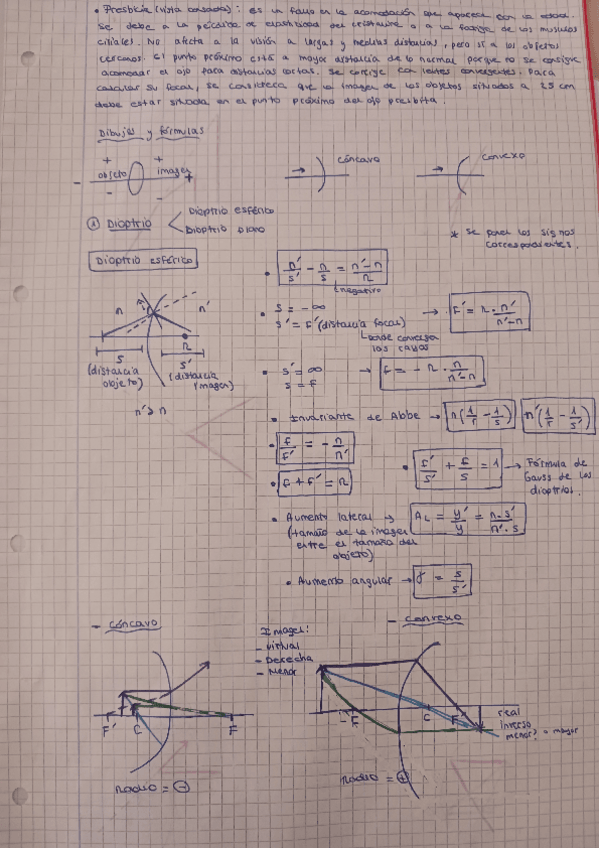 • Presbicia (vista cansada): es un fallo en la acomodación que aparece con la edad.
Se debe a la pérdida de elasticidad del cristalino o a la fatiga de los musculos
ciliales. No afecta a la visión a largas y medias distancias, pero sí a los objetos
cercanos. El punto próximo está a mayor distancia de lo normal porque no se consigue
acomodar el ojo para distancias cortas. Se corrige con lentes convergentes. Para
calcular su focal, se considera que la imagen de los objetos situados a 25 cm
debe estar situada en el punto próximo del ojo présbita.
Dibujos y fórmulas
+ +
objeto imagen
- - +
-
cóncavo
convexo
① Dioptrio
Dioptrio esférico
Dioptrio plano
* Se ponen los signos
correspondientes.
Dioptrio esférico
• n'/s' - n/s = n'-n/r
negativo
n n'
r
s s'
(distancia objeto) (distancia imagen)
n' > n
• s = -∞
s' = F' (distancia focal) → F' = r · n'/n'-n
donde convergen
los rayos
• s' = ∞
s = F → f = - r · n/n'-n
• Invariante de Abbe → n(1/r - 1/s) n'(1/r - 1/s')
• f/f' = - n/n'
• f'/s' + f/s = 1 → Fórmula de
Gauss de los
dioptrios.
• f + f' = r
• Aumento lateral → AL = y'/y = n·s'/n'·s
(tamaño de la imagen
entre el tamaño del
objeto)
• Aumento angular → γ = s/s'
- Cóncavo
Imagen:
- Virtual
- Derecha
- Menor
- Convexo
F' C F
Radio = ⊖
F C F'
real
inverso
menor, = mayor
Radio = ⊕